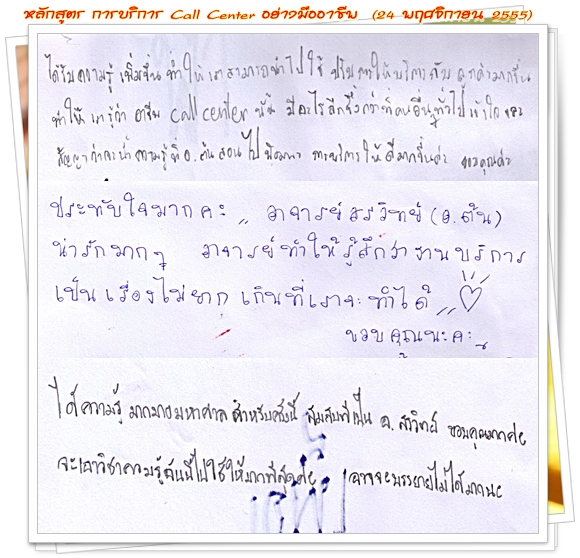 หลักสูตร การบริการ Call Center อย่างมืออาชีพ (24 พฤศจิกายน 2555)
ได้รับความรู้ เพิ่มขึ้น ทำให้เราสามารถนำไปใช้ ปรับการให้บริการกับ ลูกค้ามากขึ้น
ทำให้ เรารู้ว่า อาชีพ call center นั้น มีอะไรลึกซึ้งกว่าที่คนอื่นทั่วไปเข้าใจ และ
สัญญาว่าจะนำความรู้ที่ อ.ต้นสอนไปพัฒนา การบริการให้ดีมากขึ้นค่ะ ขอบคุณค่ะ
ประทับใจมากคะ ,, อาจารย์สรวิทย์ (อ.ต้น)
น่ารักมากๆ อาจารย์ทำให้รู้สึกว่างานบริการ
เป็นเรื่องไม่ยาก เกินที่เราจะทำได้ ,, ♡
ขอบคุณนะคะ
ได้ความรู้ มากมายมหาศาล สำหรับครั้งนี้ สมกับที่เป็น อ. สรวิทย์ ขอบคุณมากค่ะ
จะเอาวิชาความรู้อันนี้ไปใช้ให้มากที่สุดค่ะ อาจจะบรรยายไม่ได้มากนะ